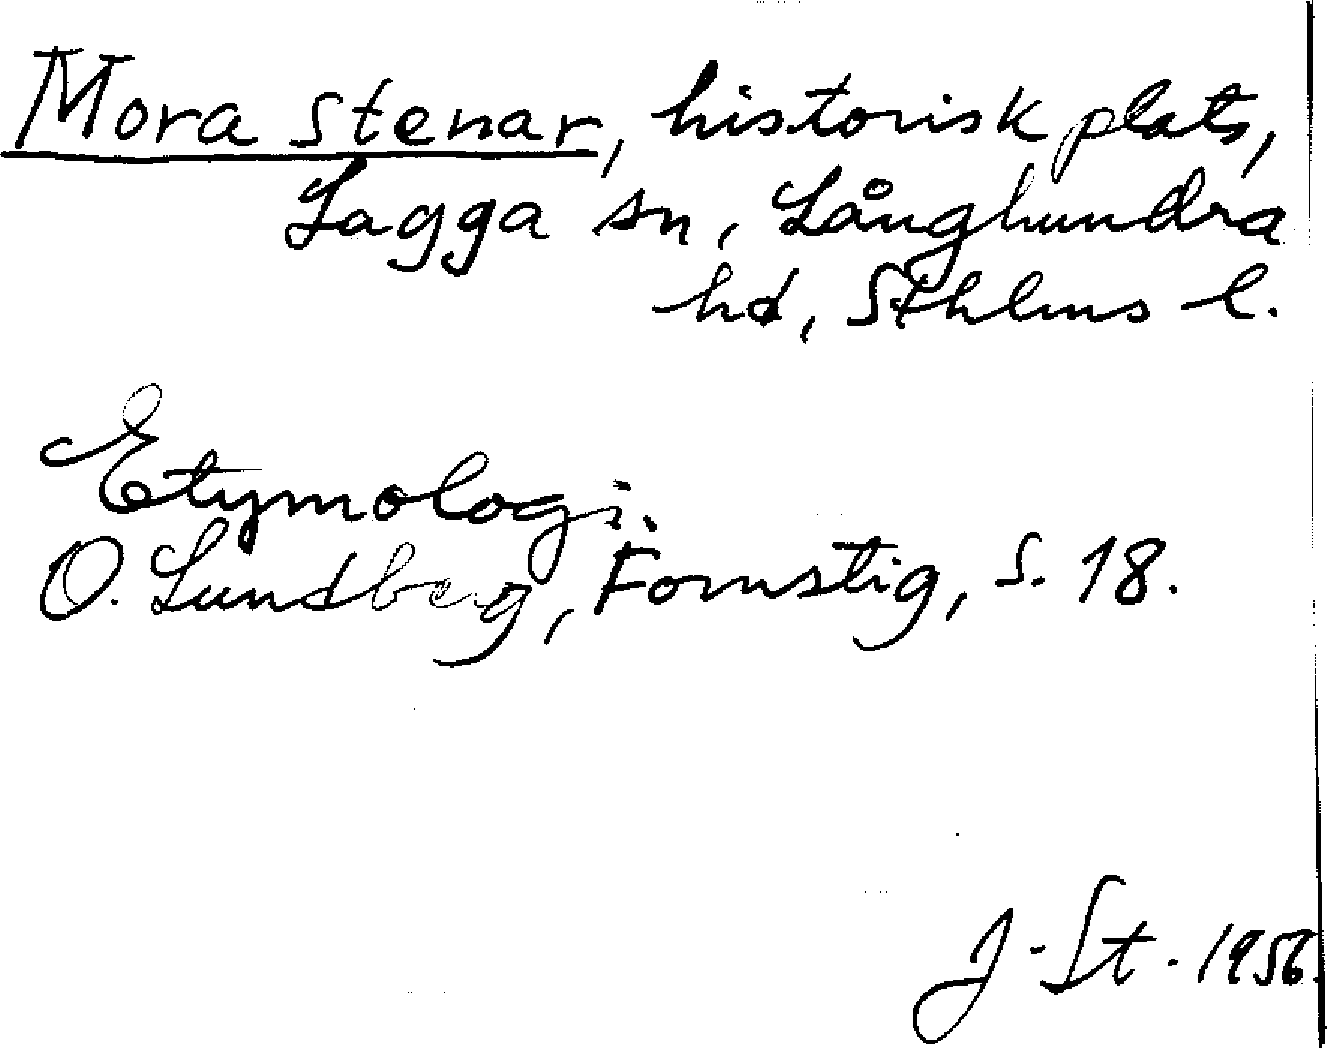 Mora stenar, historisk plats,
Lagga sn, Långhundra
hd, Sthlms l.
Etymologi.
O. Lundberg, Fornstig, s. 18.
J. St. 1956.